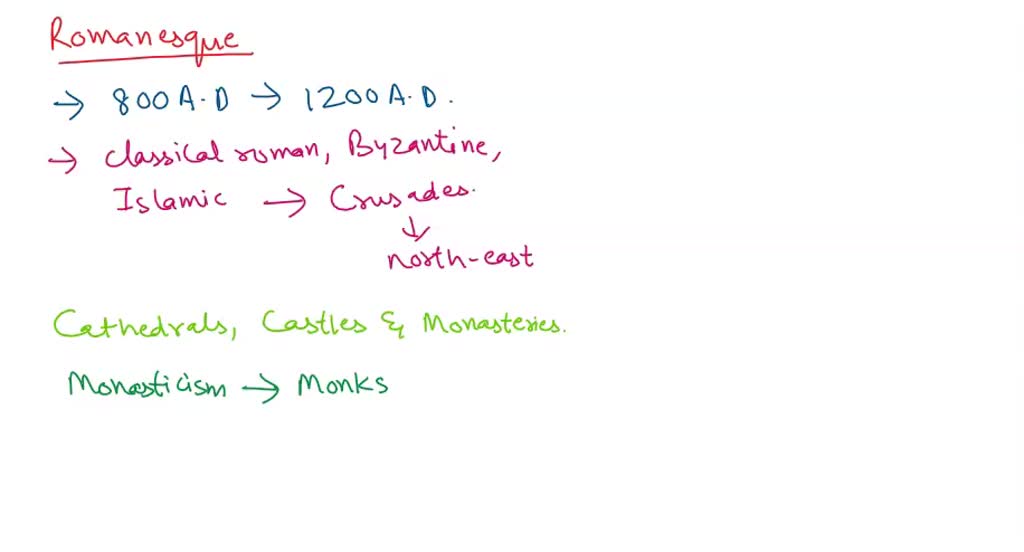 Romanesque
→ 800 A.D → 1200 A.D.
→ classical roman, Byzantine,
Islamic → Crusades.
↓
north-east
Cathedrals, Castles & Monasteries.
Monasticism → Monks